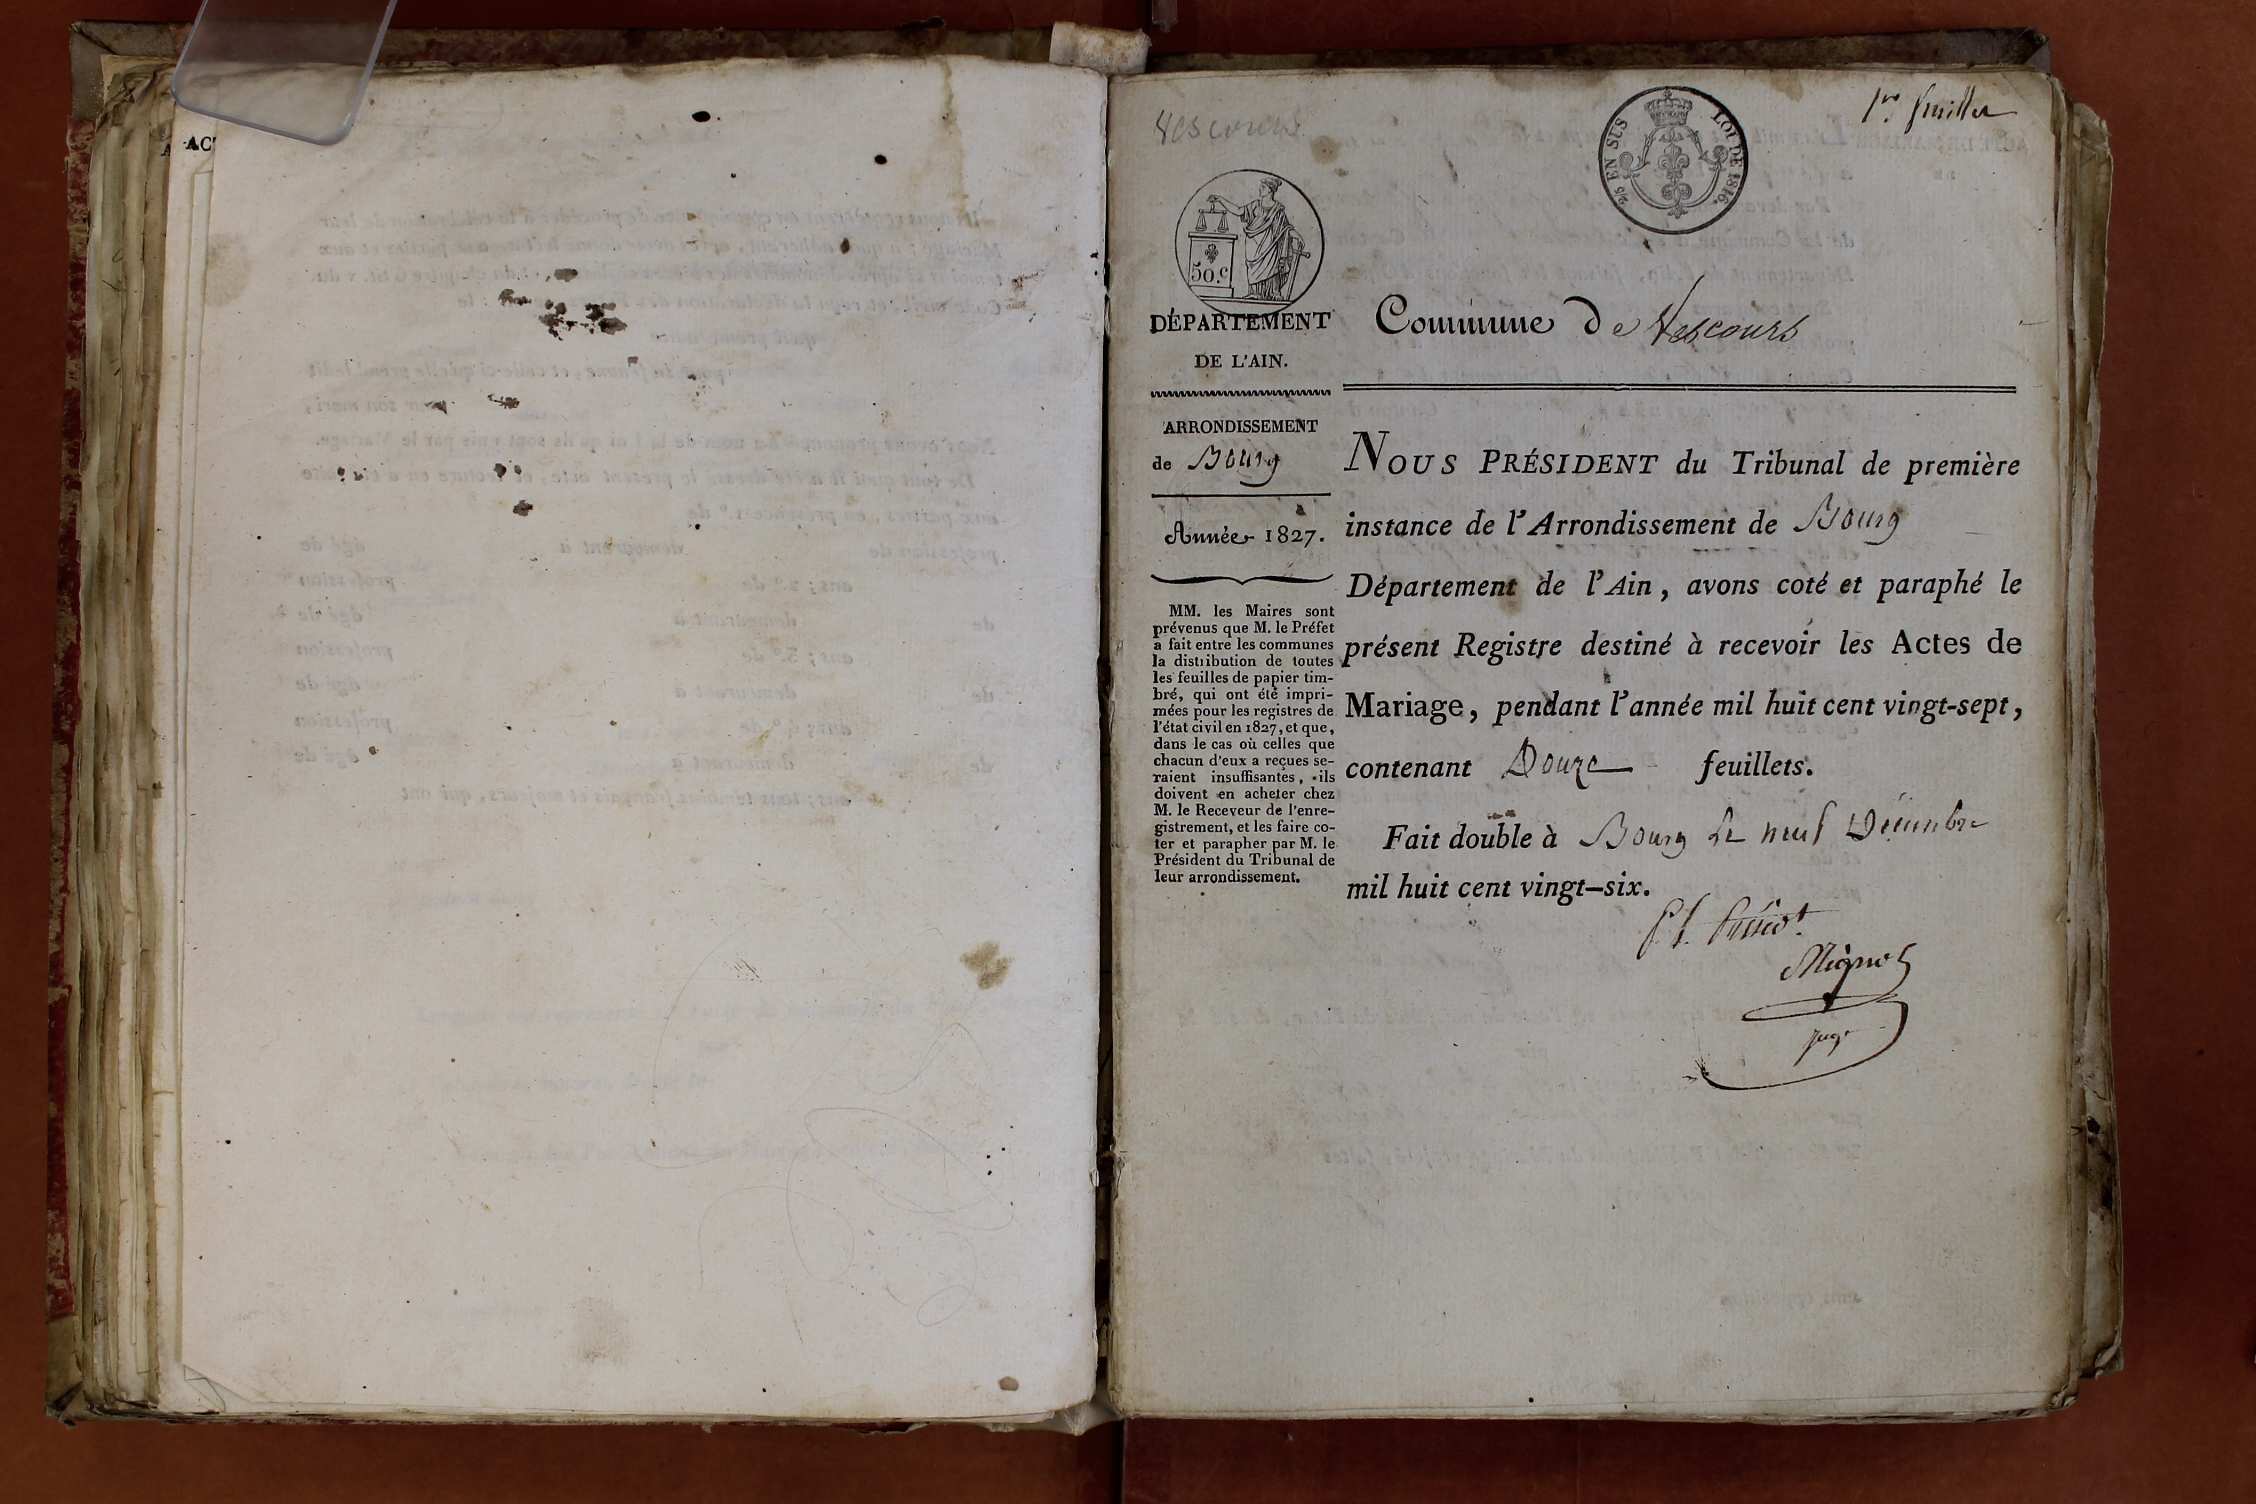 AC
Vescours
2/5 EN SUS
LOI DE 1816.
1er feuillet
50.c
DÉPARTEMENT
DE L'AIN.
Commune De Vescours
ARRONDISSEMENT
de Bourg
Année 1827.
MM. les Maires sont
prévenus que M. le Préfet
a fait entre les communes
la distribution de toutes
les feuilles de papier tim-
bré, qui ont été impri-
mées pour les registres de
l'état civil en 1827, et que,
dans le cas où celles que
chacun d'eux a reçues se-
raient insuffisantes, ils
doivent en acheter chez
M. le Receveur de l'enre-
gistrement, et les faire co-
ter et parapher par M. le
Président du Tribunal de
leur arrondissement.
NOUS PRÉSIDENT du Tribunal de première
instance de l'Arrondissement de Bourg
Département de l'Ain, avons coté et paraphé le
présent Registre destiné à recevoir les Actes de
Mariage, pendant l'année mil huit cent vingt-sept,
contenant Douze feuillets.
Fait double à Bourg le neuf Décembre
mil huit cent vingt-six.
Mignot
juge